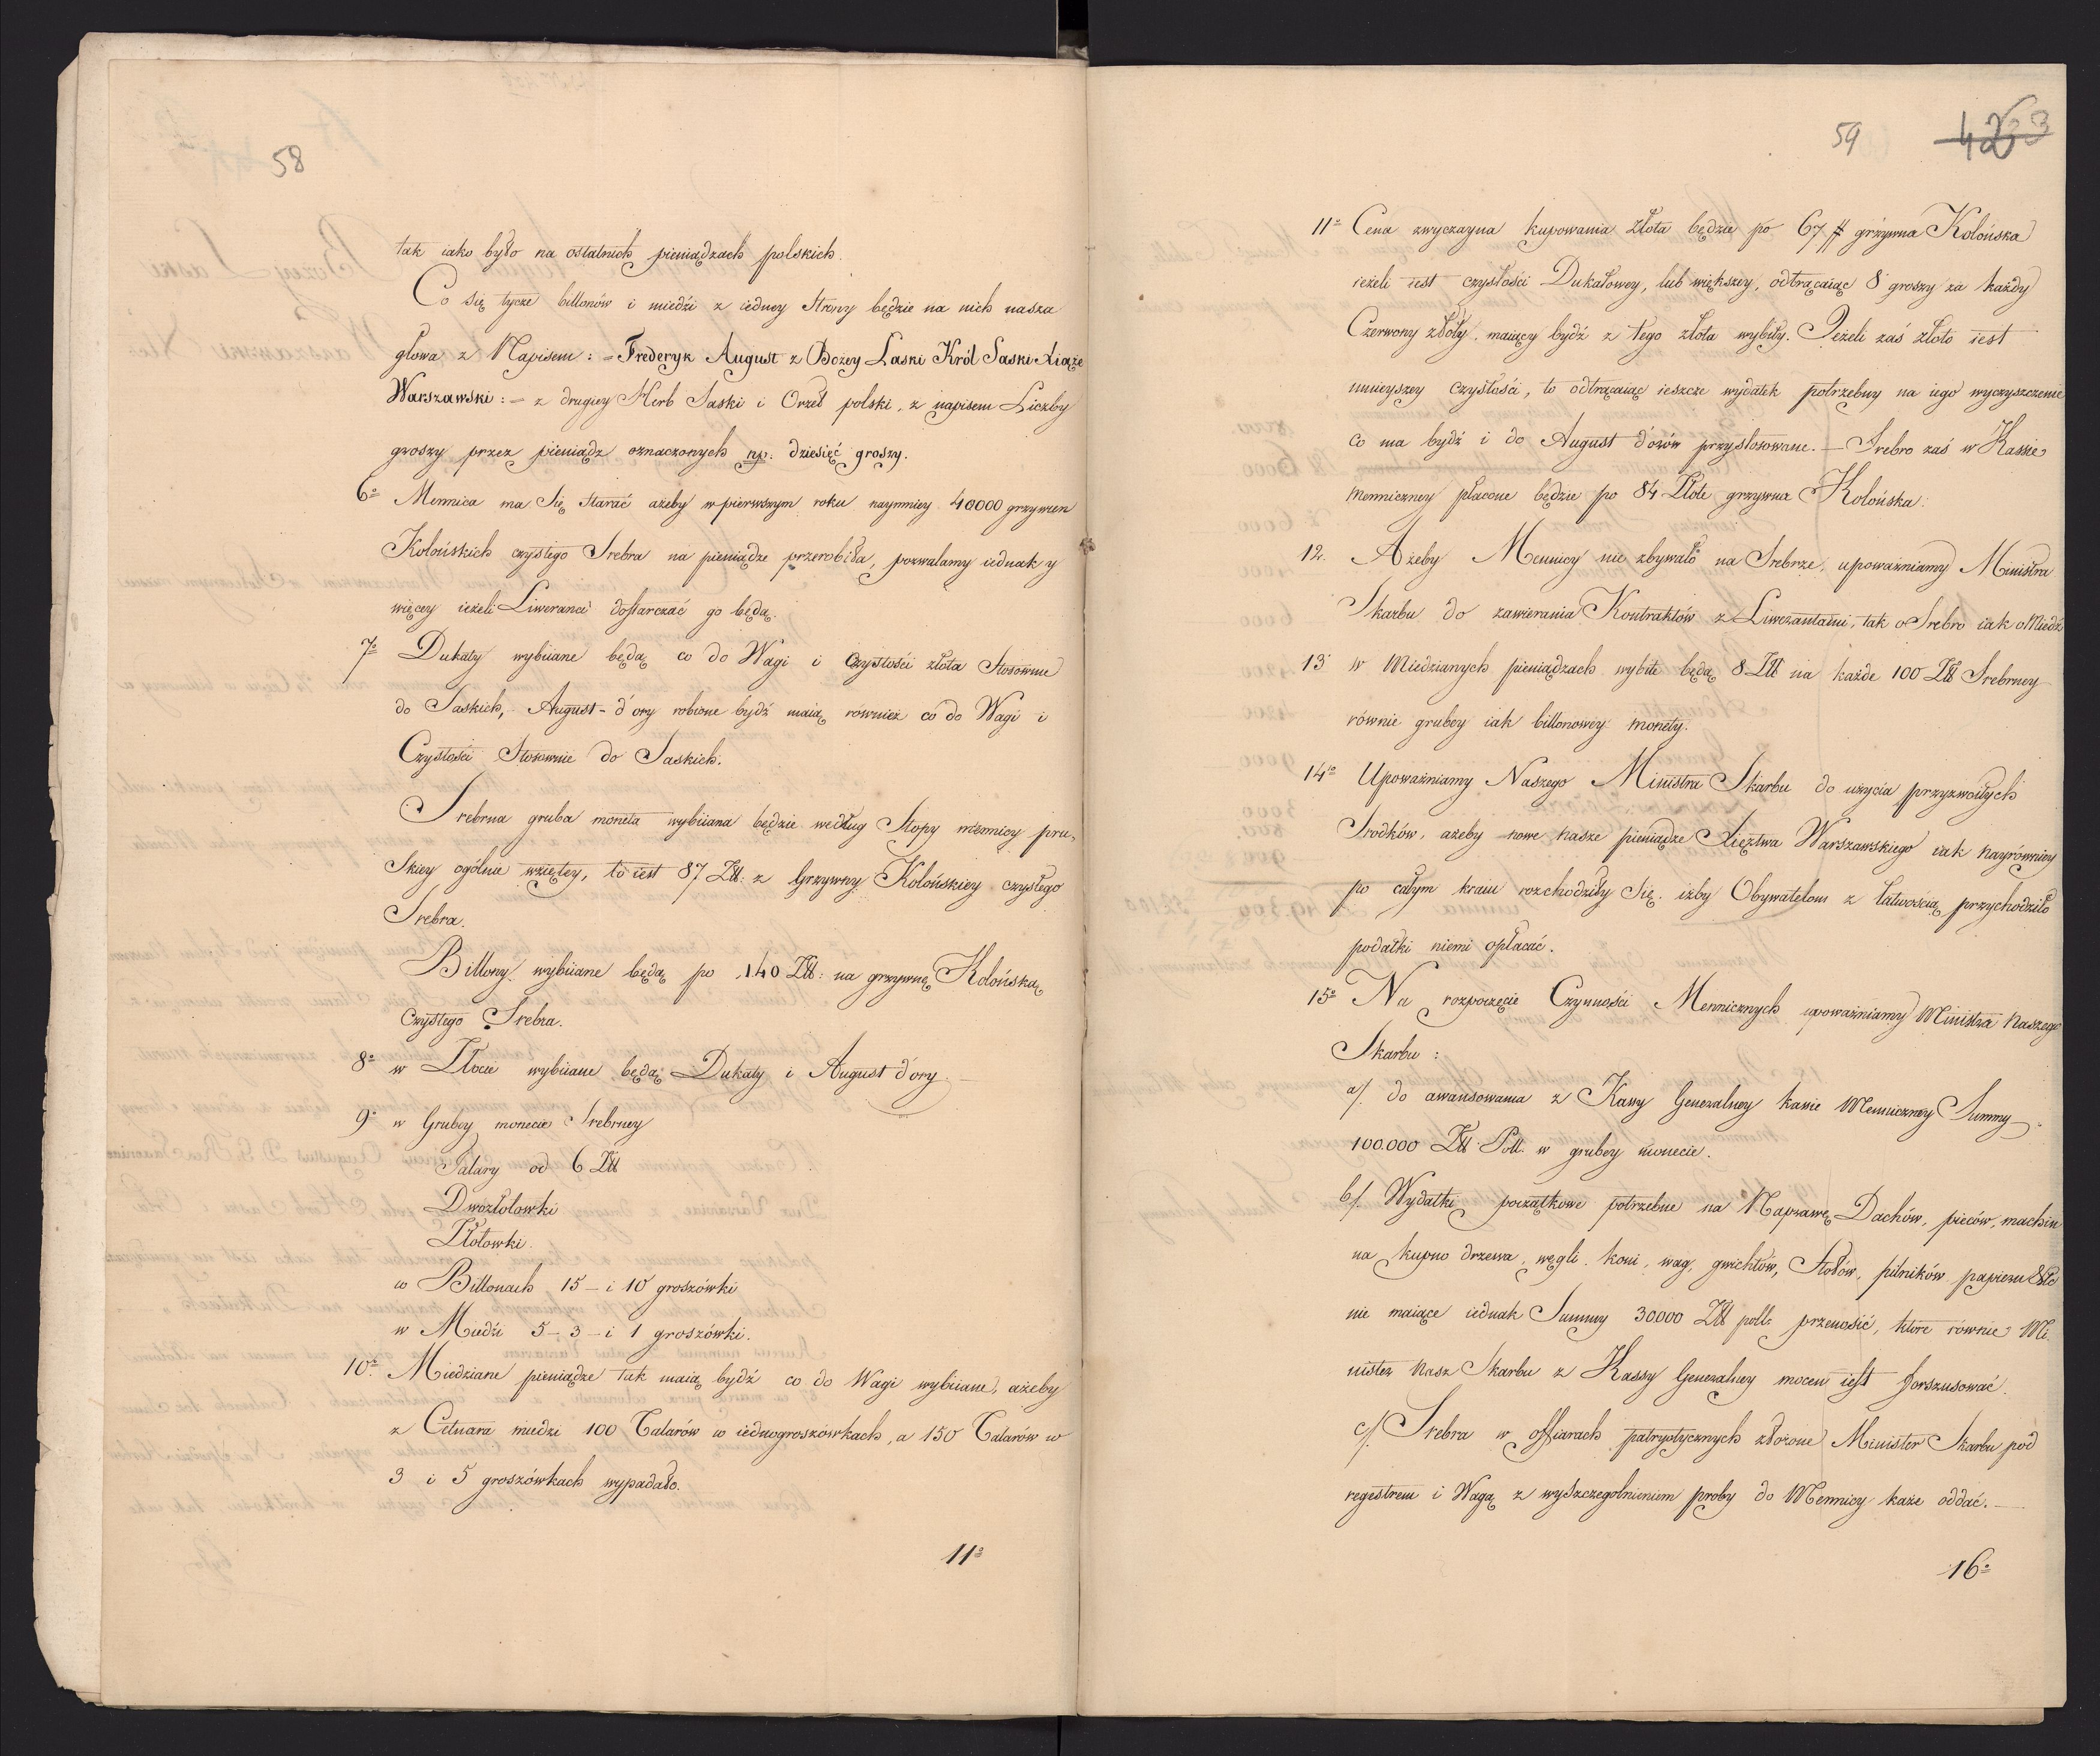 58
tak iako było na ostatnich pieniądzach polskich.
Co się tycze billonów i miedzi z iedney Strony będzie na nich nasza
głowa z Napisem: = Frederyk August z Bożey Laski Król Saski Xiąże
Warszawski: = z drugiey Herb Saski i Orzeł polski, z napisem Liczby
groszy przez pieniądz oznaczonych np: dziesięć groszy.
6o Mennica ma Się Starać ażeby w pierwszym roku naymniey 40000 grzywien
Kolońskich czystego Srebra na pieniądze przerobiła, pozwalamy iednak y
więcey ieżeli Liweranci dostarczać go będą.
7o Dukaty wybiiane będą co do Wagi i Czystości złota Stosownie
do Saskich, August-d'ory robione bydź maią również co do Wagi i
Czystości Stosownie do Saskich.
Srebrna gruba moneta wybiiana będzie według Stopy mennicy pru-
Skiey ogólnie wziętey, to iest 87 Złł: z Grzywny Kolońskiey czystego
Srebra.
Billony wybiiane będą po 140 Złł: na grzywnę Kolońską
Czystego Srebra.
8o w Złocie wybiiane będą Dukaty i August d'ory.
9o w Grubey monecie Srebrney
Talary od 6 Złł
Dwozłotowki
Złotowki.
w Billonach 15 - i 10 groszówki
w Miedzi 5 - 3 - i 1 groszówki.
10o Miedziane pieniądze tak maią bydź co do Wagi wybiiane, ażeby
z Cetnara miedzi 100 Talarów w iednogroszówkach, a 150 Talarów w
3 i 5 groszówkach wypadało.
11o
59
11o Cena zwyczayna kupowania Złota będzie po 67 # grzywna Kolońska
ieżeli iest czystości Dukatowey, lub większey, odtrącaiąc 8 groszy za każdy
Czerwony złoty, maiący bydź z tego złota wybity. Jeżeli zaś złoto iest
mnieyszey czystości, to odtrącaiąc ieszcze wydatek potrzebny na iego wyczyszczenie
co ma bydź i do August d'orów przystosowane. — Srebro zaś w Kassie
menniczney płacone będzie po 84 Złote grzywna Kolońska:
12. Ażeby Mennicy nie zbywało na Srebrze, upoważniamy Ministra
Skarbu do zawierania Kontraktów z Liwerantami, tak o Srebro iak o Miedź
13 w Miedzianych pieniądzach wybite będą 8 Złł na każde 100 Złł Srebrney
równie grubey iak billonowey monety.
14o Upoważniamy Naszego Ministra Skarbu do użycia przyzwoitych
Srodków, ażeby nowe nasze pieniądze Xięztwa Warszawskiego iak nayrówniey
po całym kraiu rozchodziły Się, iżby Obywatelom z łatwością przychodziło
podatki niemi opłacać.
15o Na rozpoczęcie Czynności Mennicznych upoważniamy Ministra Naszego
Skarbu:
a/. do awansowania z Kassy Generalney kassie Menniczney Summy
100.000 Złł Poll. w grubey monecie.
b/. Wydatki początkowe potrzebne na Naprawę Dachów, pieców, machin
na kupno drzewa, węgli, koni, wag, gwichtów, Stołów, pilników papieru &tc
nie maiące iednak Summy 30000 Złł poll: przenosić, które równie Mi-
nister Nasz Skarbu z Kassy Generalney mocen iest forszusować.
c/. Srebra w offiarach patryotycznych złożone Minister Skarbu pod
regestrem i Wagą z wyszczegolnieniem proby do Mennicy każe oddać. —
16o